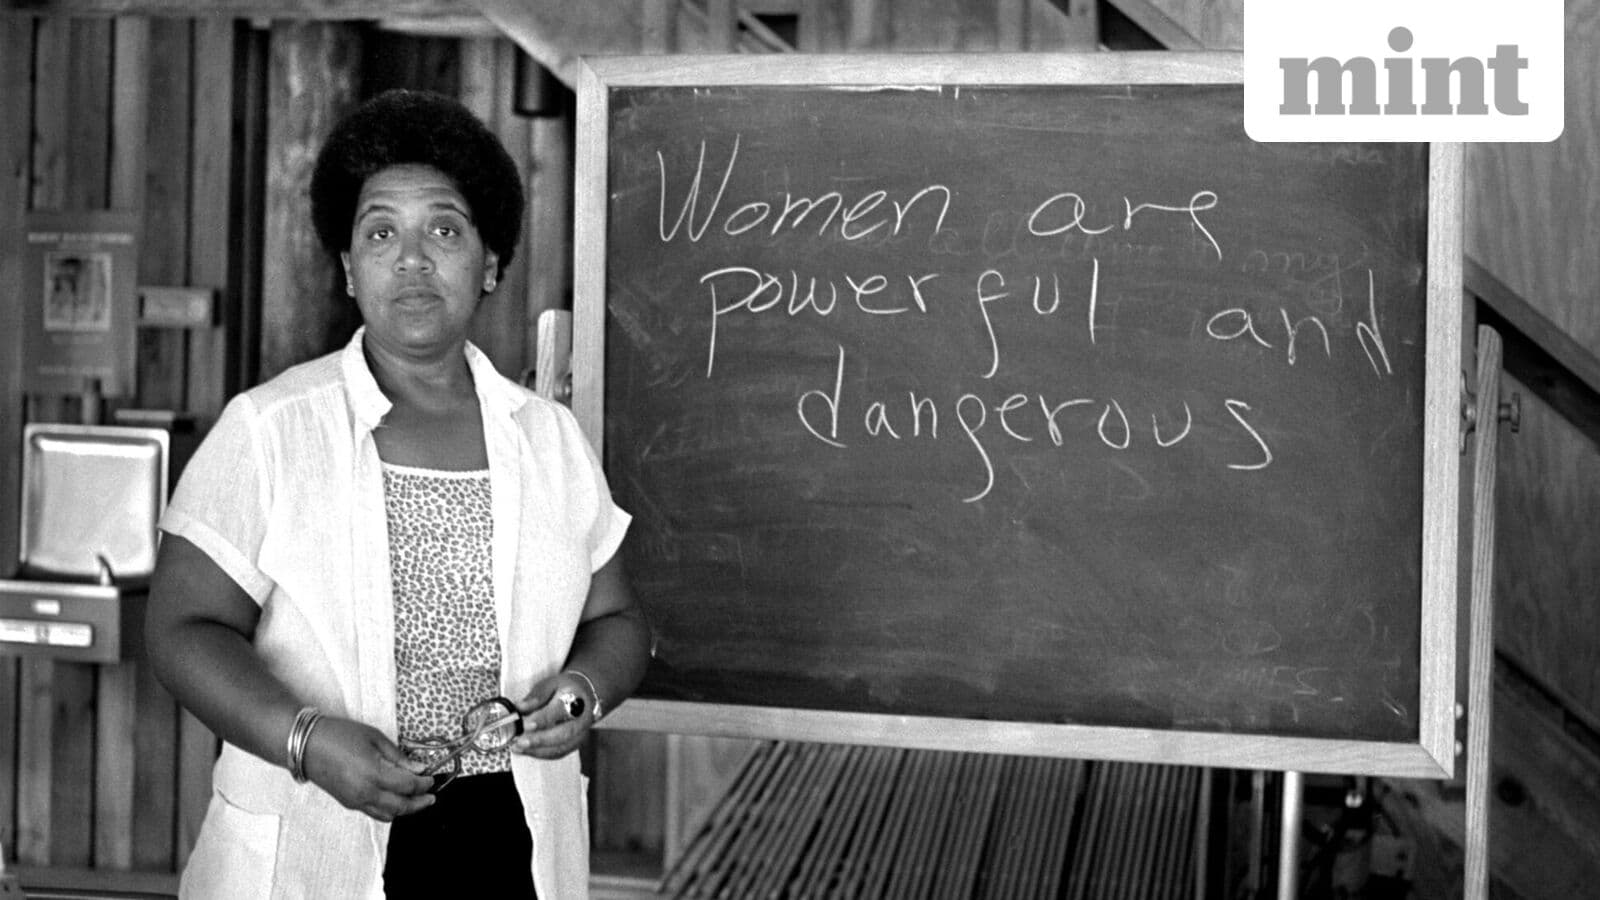 mint
Women are
powerful and
dangerous